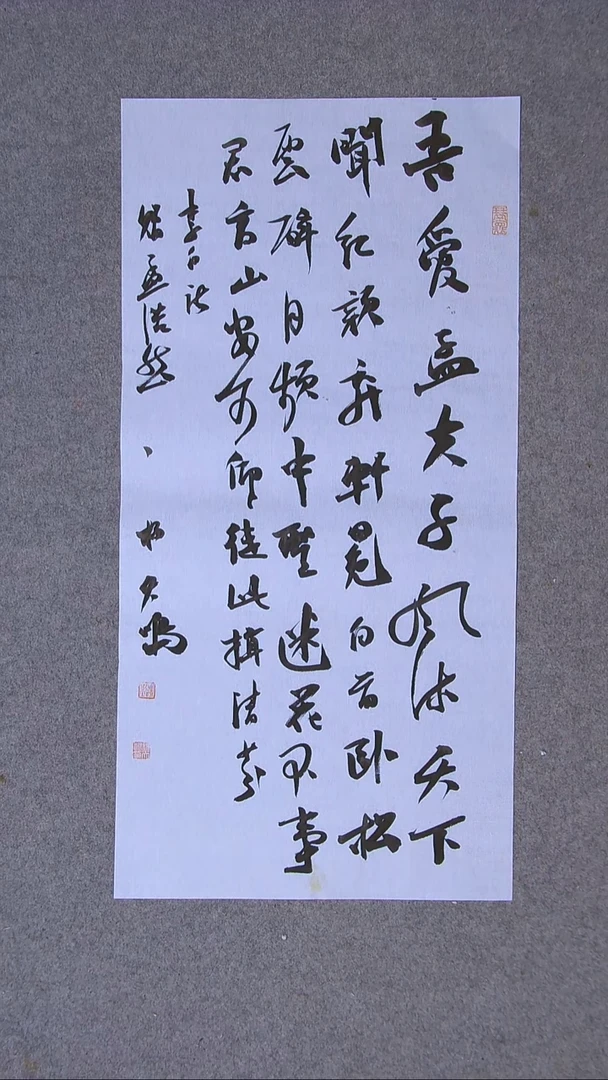 吾愛孟夫子風流天下
聞紅顏棄軒冕白首臥松
雲醉月頻中聖迷花不事
君高山安可仰徒此揖清芬
李白詩
贈孟浩然 大鳴